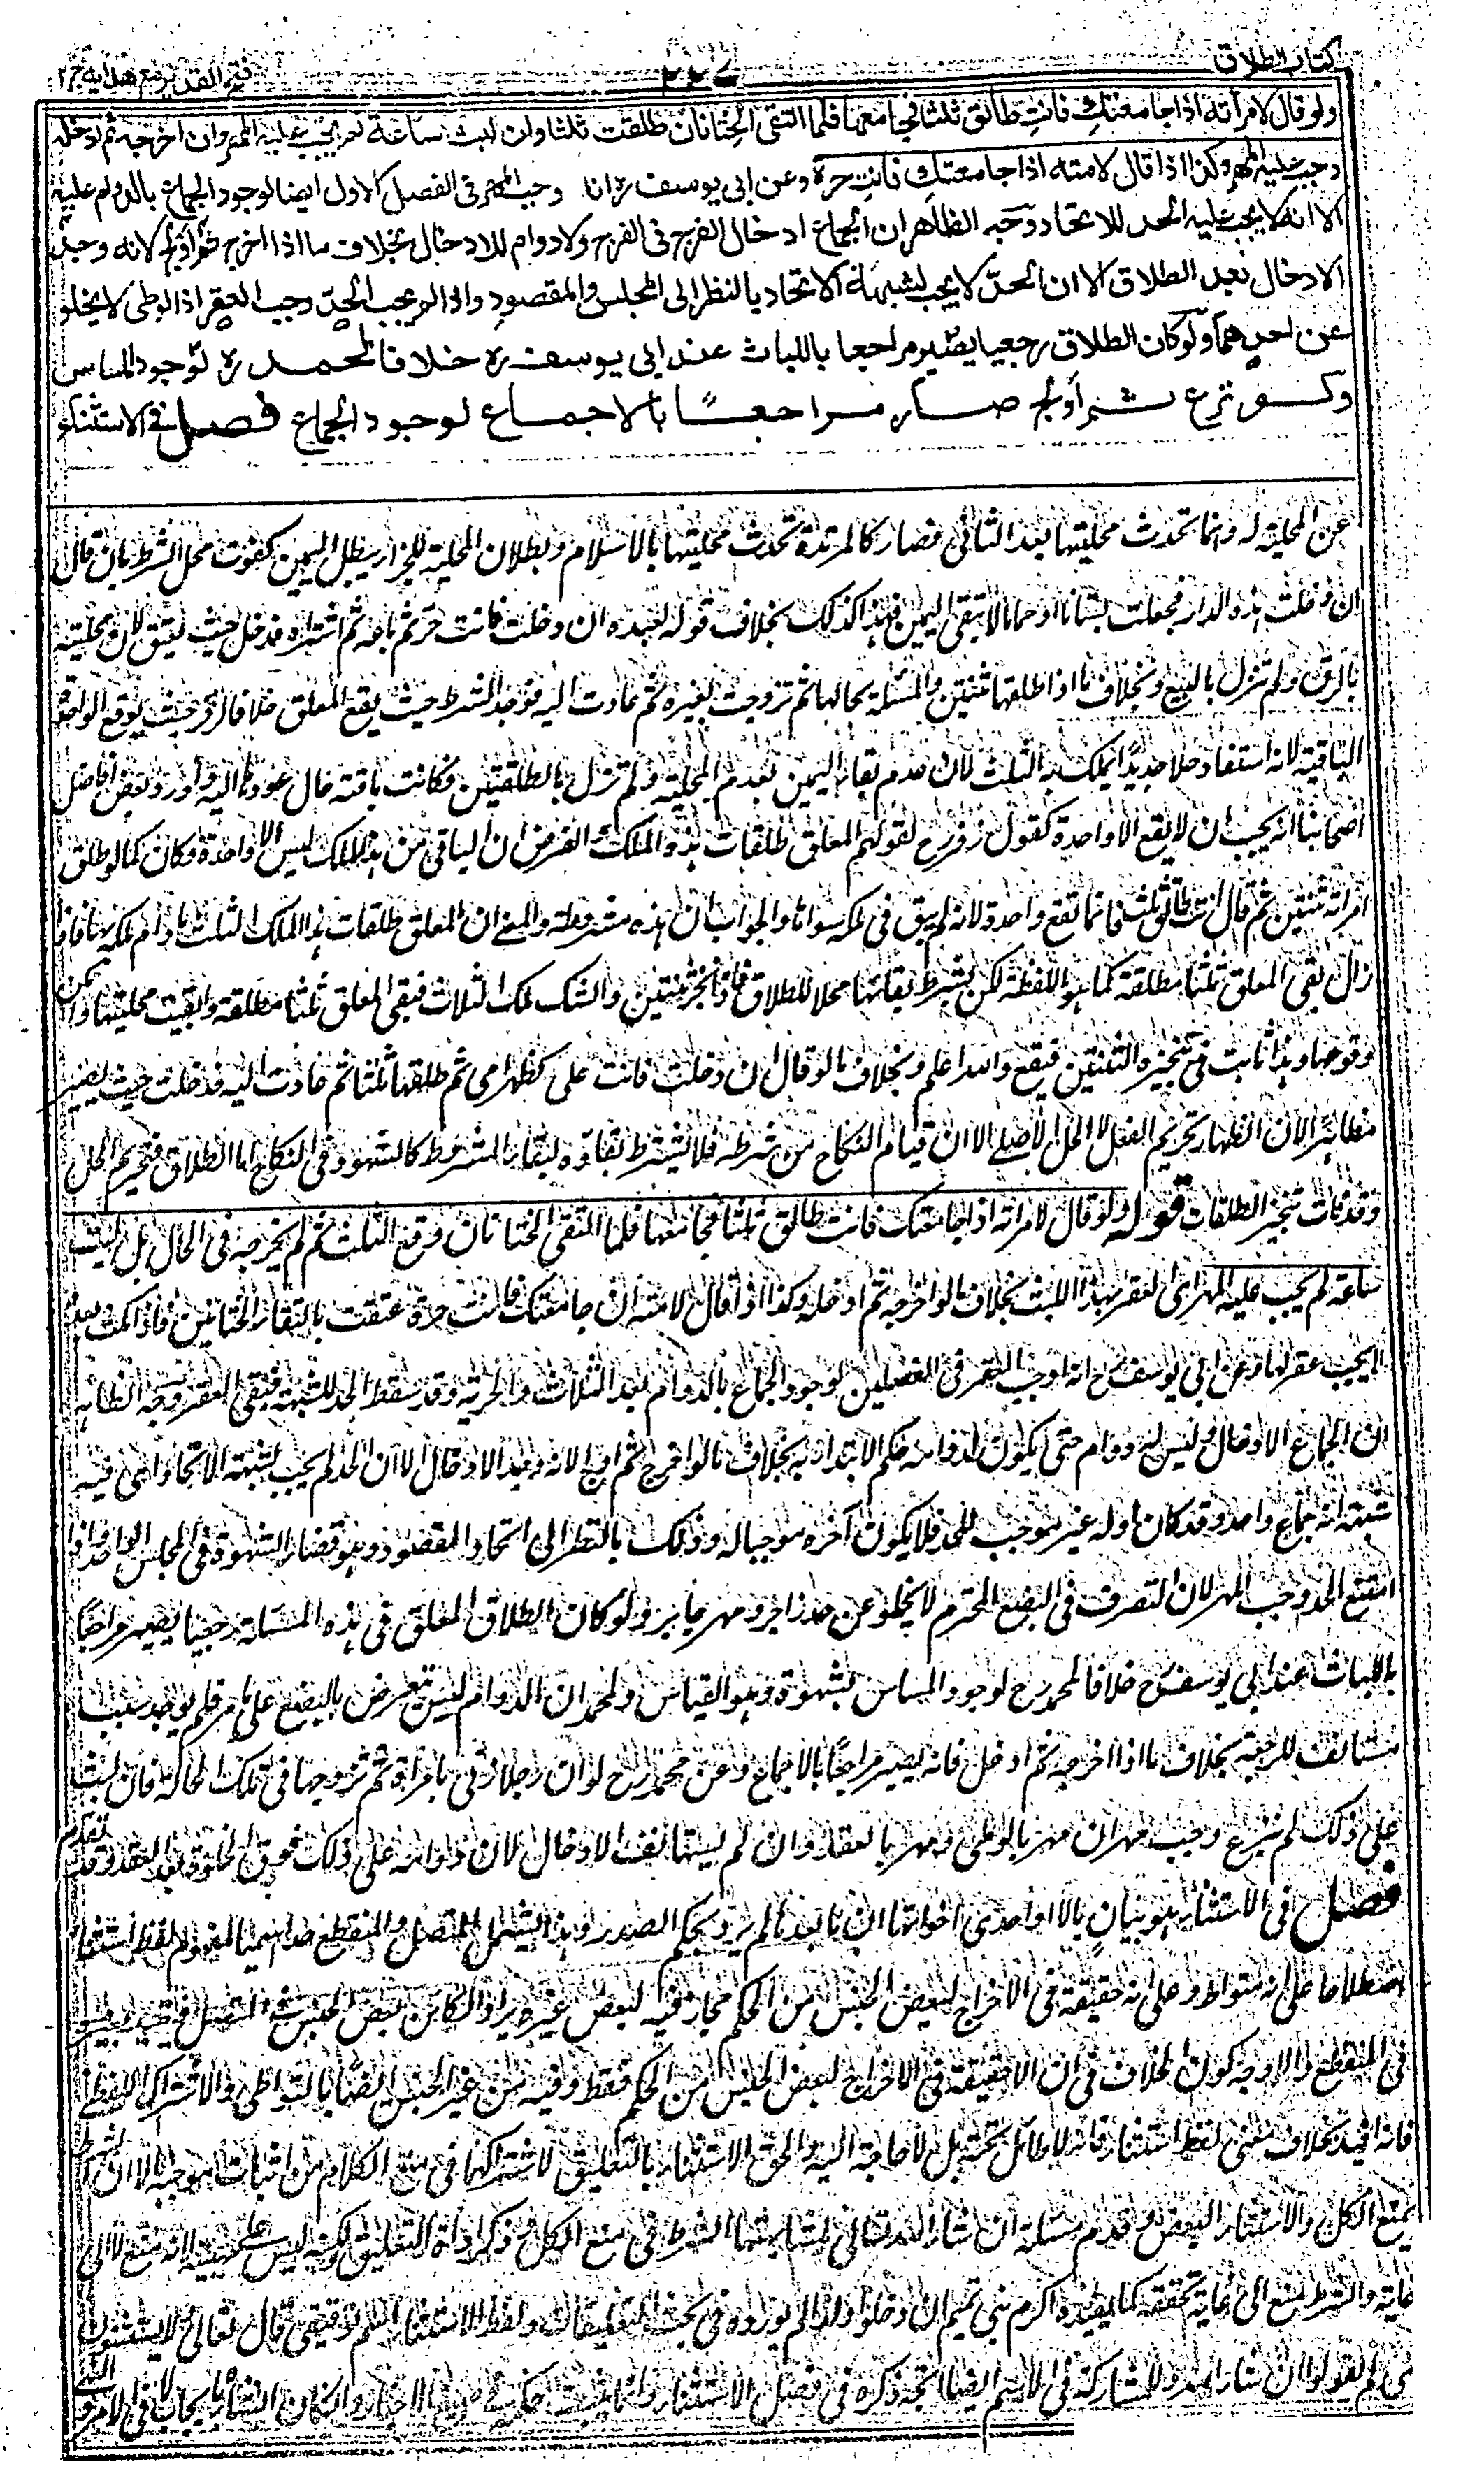 كتاب الطلاق
٢٢٧
فتح القدير مع هدايه ج ٢
ولو قال لامرأته اذا جامعتك فانت طالق ثلثا فجامعها فلما التقى الختانان طلقت ثلثا وان لبث ساعة لم يجب عليه المهر وان اخرجه ثم ادخله
وجب عليه المهر وكذا اذا قال لامته اذا جامعتك فانت حرة وعن ابى يوسف رہ انه وجب المهر فى الفصل الاول ايضا لوجود الجماع بالدوام عليه
الا انه لا يجب عليه الحد للاتحاد وجه الظاهر ان الجماع ادخال الفرج فى الفرج ولا دوام للادخال بخلاف ما اذا اخرج ثم اولج لانه وجد
الادخال بعد الطلاق الا ان الحد لا يجب لشبهة الاتحاد بالنظر الى المجلس والمقصود واذا لم يجب الحد وجب العقر اذ الوطى لا يخلو
عن احدهما ولو كان الطلاق رجعيا يصير مراجعا باللباث عند ابى يوسف رہ خلافا لمحمد رہ لوجود المساس
ولو نزع ثم اولج صار مراجعا بالاجماع لوجود الجماع فصل فى الاستثناء
عن المحلية له وانما تحدث محليتها بعد الثانى فصار كالمرتدة تحدث محليتها بالاسلام وبطلان المحلية للجزاء يبطل اليمين كفوت محل الشرط بان قال
ان دخلت هذه الدار فجعلت بستانا او حماما لا تبقى اليمين فهذا كذلك بخلاف قوله لعبده ان دخلت فانت حر ثم باعه ثم اشتراه فدخل حيث يعتق لان محليته
بالرق ولم تزل بالبيع وبخلاف ما اذا طلقها ثنتين والمسئلة بحالها ثم تزوجت بغيره ثم عادت اليه فوجد الشرط حيث يقع المعلق خلافا لزفر حيث يوقع الواحدة
الباقية لانه استفاد حلا جديدا يملك به الثلث لان عدم بقاء اليمين بعدم المحلية ولم تزل بالطلقتين فكانت باقية حال عودها اليه واورد بعض افاضل
اصحابنا انه يجب ان لا يقع الا واحدة كقول زفرح لقولهم المعلق طلقات هذه الملك والفرض ان الباقى من هذا الملك ليس الا واحدة فكان كما لو طلق
امرأته ثنتين ثم قال انت طالق ثلث فانما تقع واحدة لانه لم يبق فى ملكه سواها والجواب ان هذه مشروطة والمعنى ان المعلق طلقات هذا الملك الثلث ما دام ملكه لها فاذا
زال بقى المعلق ثلثا مطلقة كما هو اللفظ لكن بشرط بقائها محلا للطلاق فاذا نجز ثنتين زال ملك الثلاث فبقى المعلق ثلثا مطلقة ولبقيت محليتها وامكن
وقوعها وهذا ثابت فى تنجيزه الثنتين فيقع والله اعلم وبخلاف ما لو قال ان دخلت فانت على كظهر امى ثم طلقها ثلثا ثم عادت اليه فدخلت حيث يصير
مظاهرا لان الظهار تحريم الفعل لا الحل الاصلى الا ان قيام النكاح من شرطه فلا يشترط بقاؤه لبقاء المشروط كالشهود فى النكاح اما الطلاق فتحريم الحل
وقد فات بتنجيز الطلقات قوله ولو قال لامرأته اذا جامعتك فانت طالق ثلثا فجامعها فلما التقى الختانان وقع الثلث ثم لم يخرجه فى الحال بل لبث
ساعة لم يجب عليه المهر اى العقر بهذا اللبث بخلاف ما لو اخرجه ثم ادخله وكذا اذا قال لامته ان جامعتك فانت حرة عتقت بالتقاء الختانين فاذا مكث بعد
لا يجب عقر لها وعن ابى يوسف رح انه اوجب العقر فى الفصلين لوجود الجماع بالدوام بعد الثلاث والحرية وقد سقط الحد للشبهة فبقى العقر وجه الظاهر
ان الجماع الادخال وليس له دوام حتى يكون لدوامه حكم الابتداء به بخلاف ما لو اخرج ثم اولج لانه وجد الادخال الا ان الحد لم يجب لشبهة الاتحاد اى فيه
شبهة انه جماع واحد وقد كان اوله غير موجب للحد فلا يكون آخره موجبا له وذلك بالنظر الى اتحاد المقصود وهو قضاء الشهوة فى المجلس الواحد واذا
امتنع الحد وجب المهر لان التصرف فى البضع المحترم لا يخلو عن حد زاجر ومهر جابر ولو كان الطلاق المعلق فى هذه المسئلة رجعيا يصير مراجعا
باللباث عند ابى يوسف رح خلافا لمحمد رح لوجود المساس بشهوة وهو القياس ولمحمد ان الدوام ليس بتعرض بالبضع على ما مر فلم يوجد سبب
مستانف للرجعة بخلاف ما اذا اخرجه ثم ادخل فانه يصير مراجعا بالاجماع وعن محمد رح لو ان رجلا زنى بامرأة ثم تزوجها فى تلك الحالة فان لبث
على ذلك لم ينزع وجب مهران مهر بالوطى ومهر بالعقد وان لم يستانف الادخال لان دوامه على ذلك فوق الخلوة بعد العقد وقد تقدم
فصل فى الاستثناء هو بيان بالا او احدى اخواتها ان ما بعدها لم يرد بحكم الصدر وهذا يشمل المتصل والمنقطع حد اسميا لمفهوم لفظ استثناء
اصطلاحا على انه متواطؤ وعلى انه حقيقة فى الاخراج لبعض الجنس من الحكم مجاز فيه لبعض غيره يراد الكائن بعض الجنس فى المتصل
فى المنقطع والاوجه كون الخلاف فى ان الا حقيقة فى الاخراج لبعض الجنس من الحكم فقط وفيه من غير الجنس ايضا بالتواطى والاشتراك اللفظى
فانه افيد بخلاف معنى لفظ استثناء فانه لا طائل تحته بل لا حاجة اليه والحق الاستثناء بالتعليق لاشتراكهما فى منع الكلام من اثبات موجبه الا ان الشرط
يمنع الكل والاستثناء البعض وقدم مسئلة ان شاء الله تعالى لمشابهتها الشرط فى منع الكل وذكر اداة التعليق ولكنه ليس على مهيعه لانه منع لا الى
غاية والشرط منع الى غاية تحققه كما يفيده اكرم بنى تميم ان دخلوا ولذا لم يورده فى بحث التعليقات ولفظ الاستثناء اسم توقيفى قال تعالى لا يستثنون
اى لم يقولوا ان شاء الله وللمشاركة فى الاسم ايضا اتجه ذكره فى فصل الاستثناء